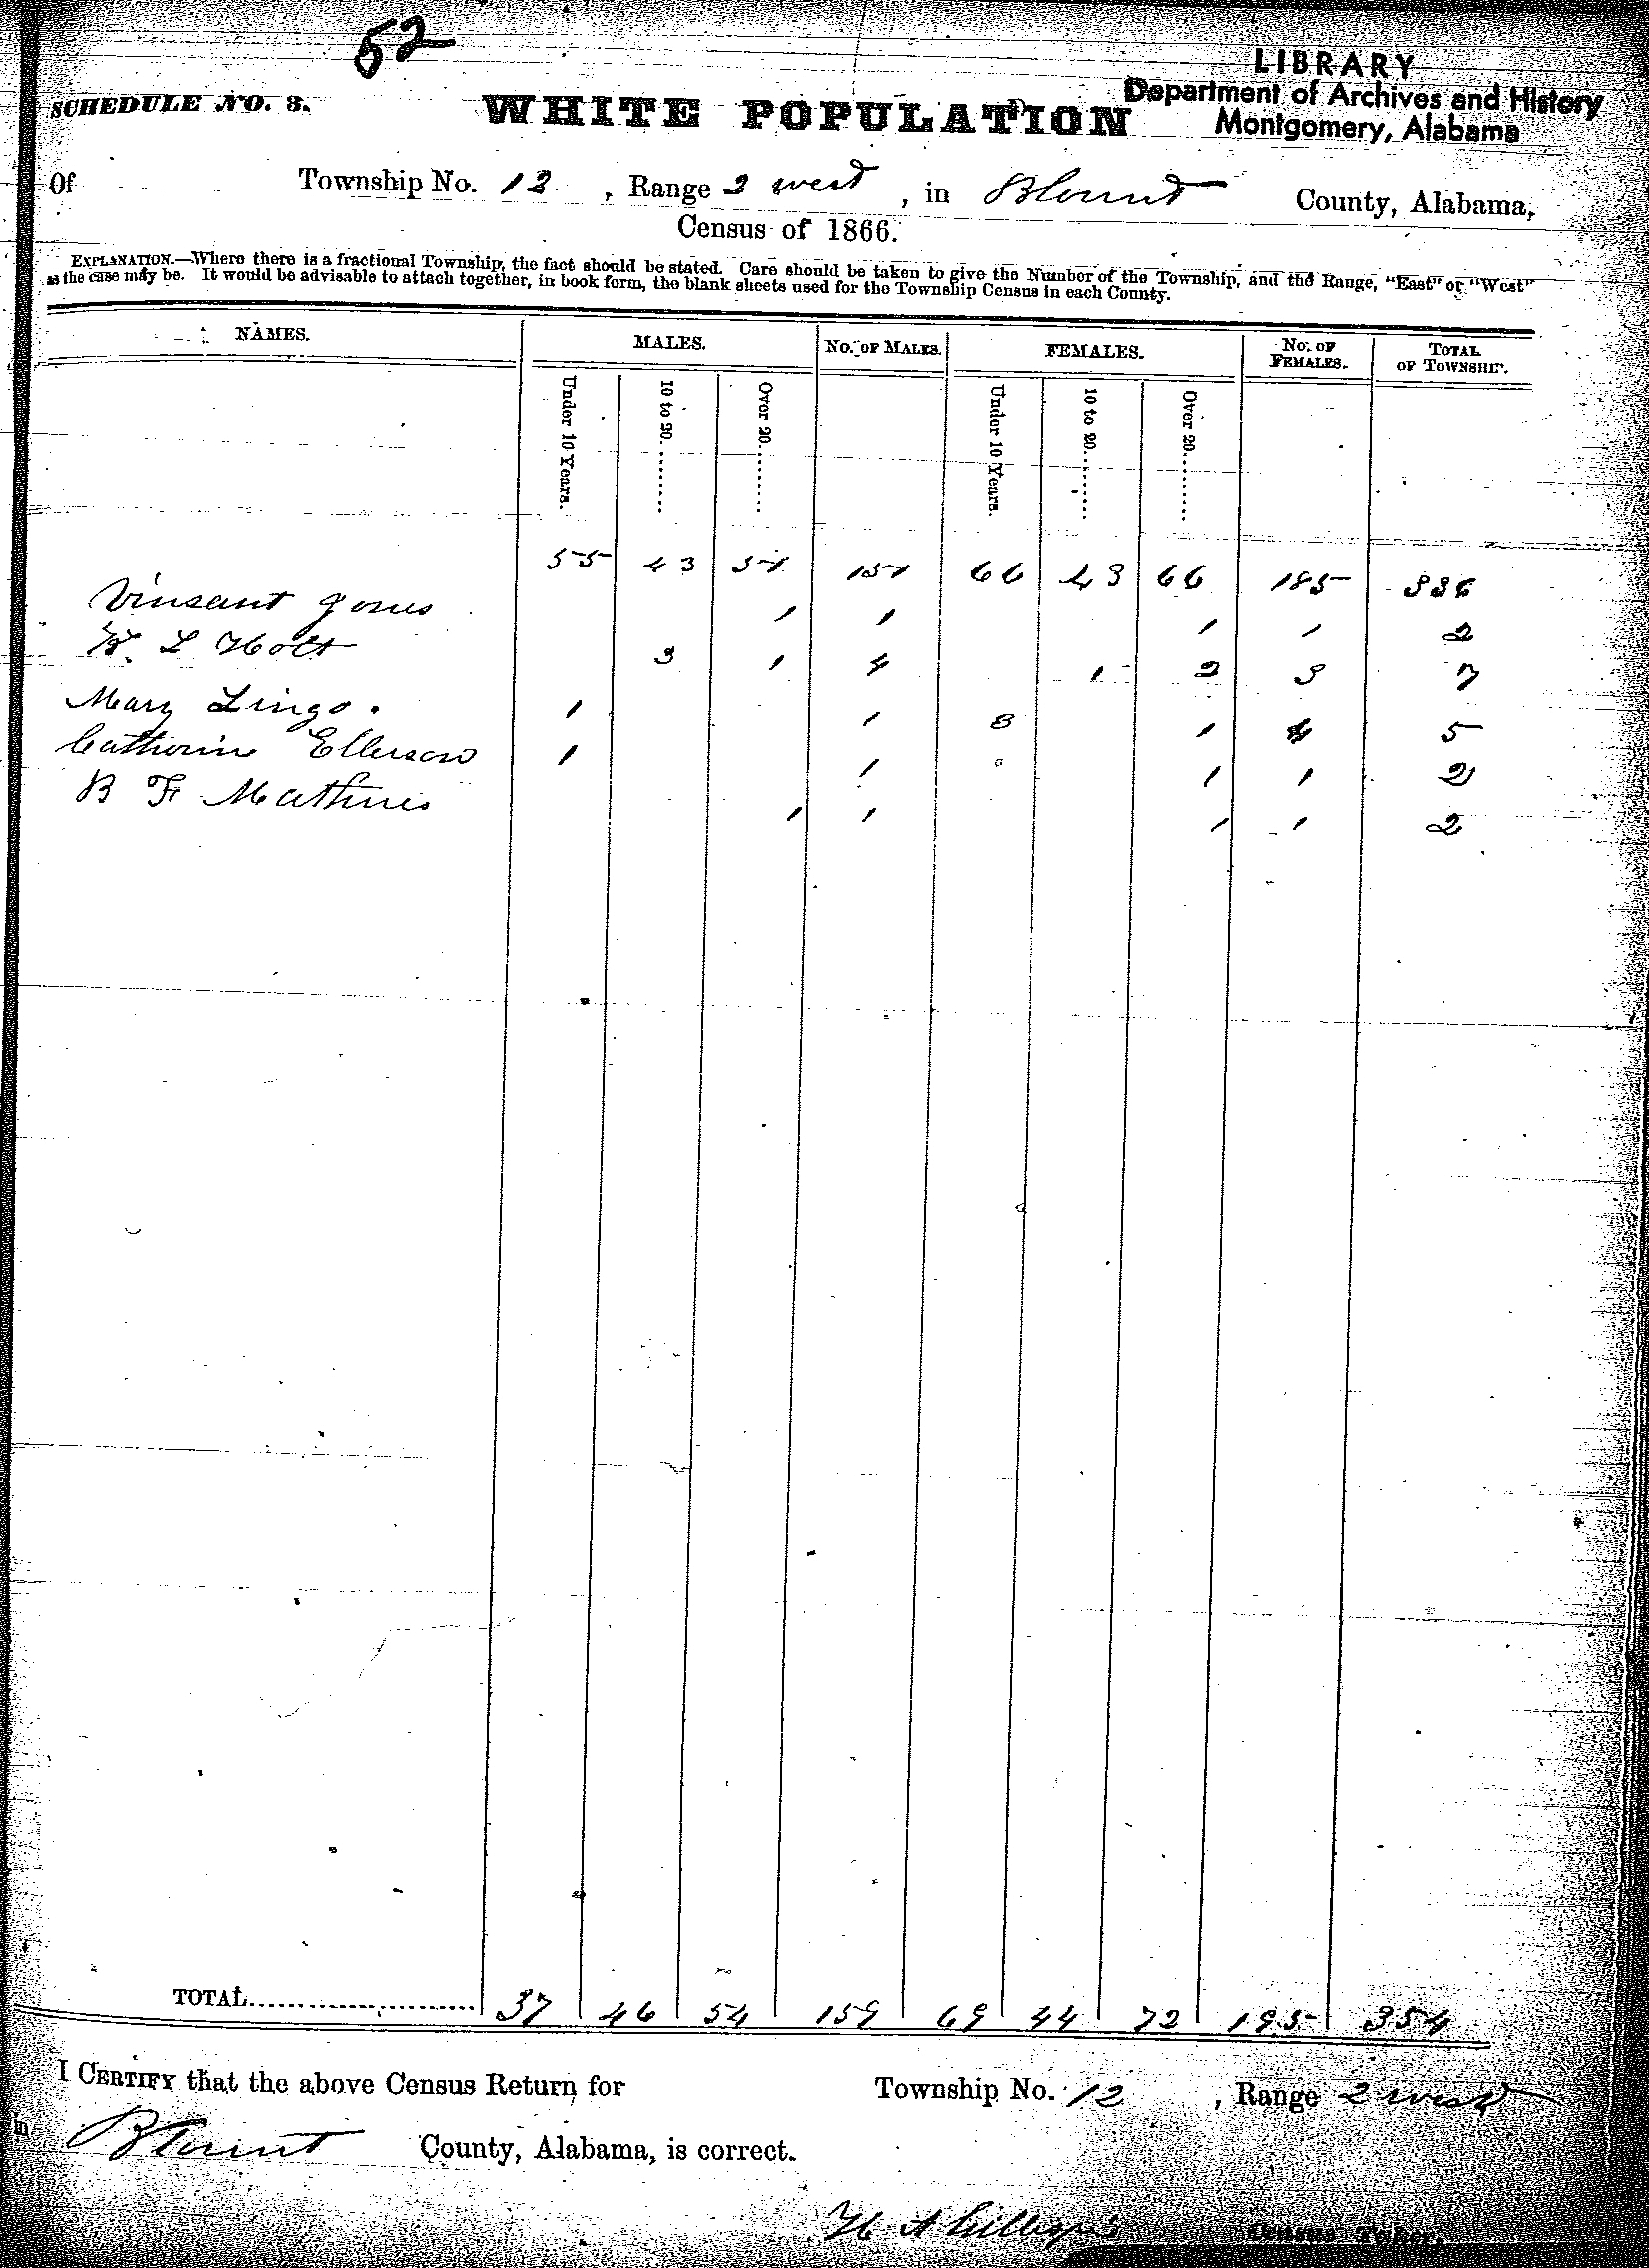 52
LIBRARY
Department of Archives and History
Montgomery, Alabama
SCHEDULE NO. 3.
WHITE POPULATION
Of Township No. 12. , Range 2 west , in Blount County, Alabama,
Census of 1866.
EXPLANATION.—Where there is a fractional Township, the fact should be stated. Care should be taken to give the Number of the Township, and the Range, "East" or "West"
as the case may be. It would be advisable to attach together, in book form, the blank sheets used for the Township Census in each County.
NAMES. MALES. No. of Males. FEMALES. No. of Females. Total of Township.
Under 10 Years. 10 to 20. Over 20. Under 10 Years. 10 to 20. Over 20.
55 43 51 151 66 43 66 185 336
Vinsant Jones 1 1 1 1 2
L Holt 3 1 4 1 2 3 7
Mary Lingo. 1 1 3 1 4 5
Catherine Ellerson 1 1 1 1 2
B F Mathues 1 1 1 1 2
TOTAL 37 46 54 159 69 44 72 195 354
I Certify that the above Census Return for Township No. 12 , Range 2 west
in Blount County, Alabama, is correct.
H A Gillespie Census Taker.